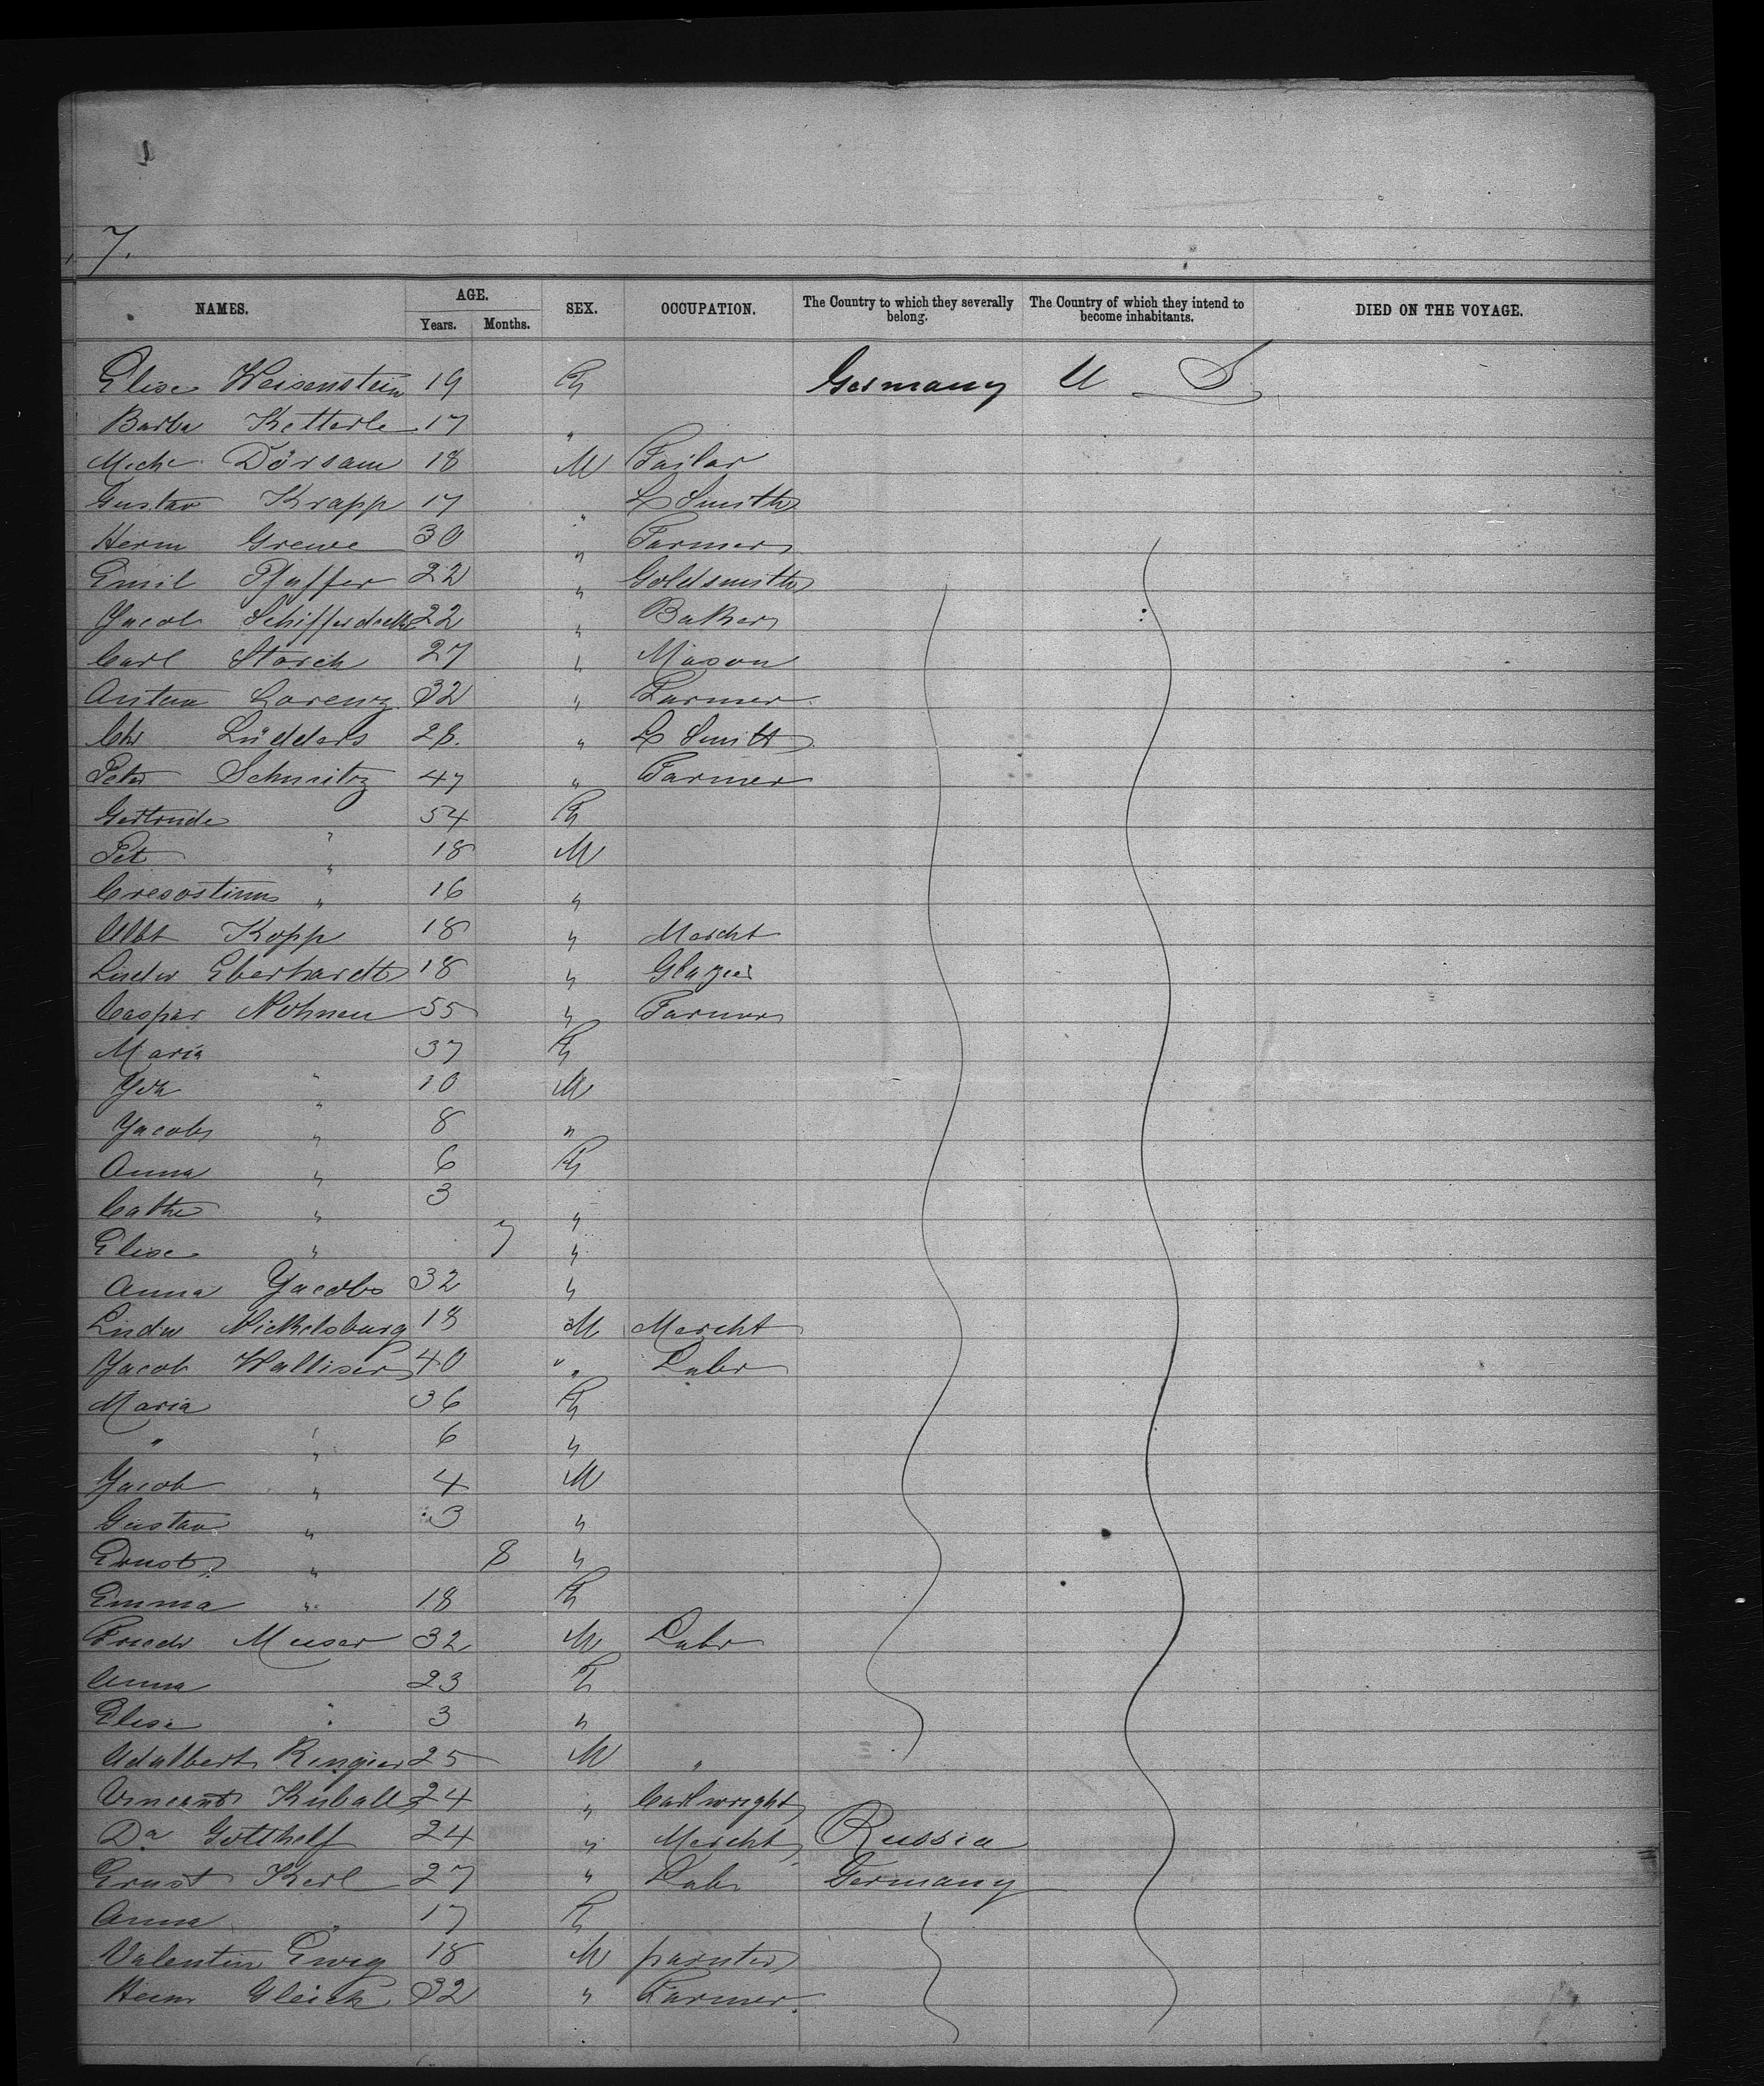 7.
NAMES. AGE. SEX. OCCUPATION. The Country to which they severally belong. The Country of which they intend to become inhabitants. DIED ON THE VOYAGE.
Years. Months.
Elise Weisenstein 19 F Germany U S
Barba Ketterle 17 "
Mich Dörsam 18 M Tailor
Gustav Krapp 17 " L Smith
Herm Grewe 30 " Farmer
Emil Pfaffer 22 " Goldsmith
Jacob Schifferdecker 22 " Baker
Carl Storch 27 " Mason
Anton Lorenz 32 " Farmer
Chr Lüdders 28 " L Smith
Peter Schmitz 47 " Farmer
Gertrude " 54 F
Pet " 18 M
" 16 "
Albt Kopp 18 " Mercht
Ludw Eberhardt 18 " Glazier
Caspar Nohnen 55 " Farmer
Maria " 37 F
Joh " 10 M
Jacob " 8 "
Anna " 6 F
Cathe " 3 "
Elise " 7 "
Anna Jacobs 32 "
Ludw Nickelsburg 18 M Mercht
Jacob Walliser 40 " Labr
Maria " 36 F
" " 6 "
Jacob " 4 M
Gustav " 3 "
Ernst " 8 "
Emma " 18 F
Friedr Meuser 32 M Labr
Anna 23 F
Elise " 3 "
Adalbert Ringier 25 M "
Vincent Kuball 24 " Cartwright
Da Gotthelf 24 " Mercht Russia
Ernst Kerl 27 " Labr Germany
Anna " 17 F
Valentin Ewig 18 M painter
Heinr Gleich 32 " Farmer